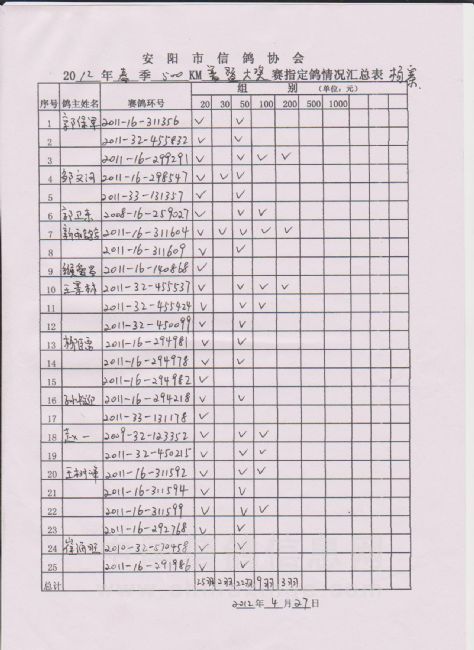 安阳市信鸽协会
2012年春季500KM 大奖赛指定鸽情况汇总表
组 别 (单位:元)
序号 鸽主姓名 赛鸽环号 20 30 50 100 200 500 1000
1 郭保军 2011-16-311356 √ √
2 2011-32-455832 √ √
3 2011-16-299291 √ √ √ √
4 邹文河 2011-16-298547 √ √ √
5 2011-33-131357 √ √
6 郭卫东 2008-16-259027 √ √ √
7 2011-16-311604 √ √ √ √ √
8 2011-16-311609 √ √
9 2011-16-140868 √
10 2011-32-455537 √ √ √ √
11 2011-32-455424 √ √ √
12 2011-32-450099 √ √
13 2011-16-294981 √ √
14 2011-16-294978 √ √
15 2011-16-294982 √
16 2011-16-294218 √ √
17 2011-33-131178 √
18 赵一 2009-32-123352 √ √ √
19 2011-32-450215 √ √ √
20 2011-16-311592 √ √ √
21 2011-16-311594 √ √
22 2011-16-311599 √ √ √
23 2011-16-292768 √ √
24 2010-32-570458 √ √
25 2011-16-291986 √ √
总计 25羽 2羽 22羽 9羽 3羽
2012年4月27日